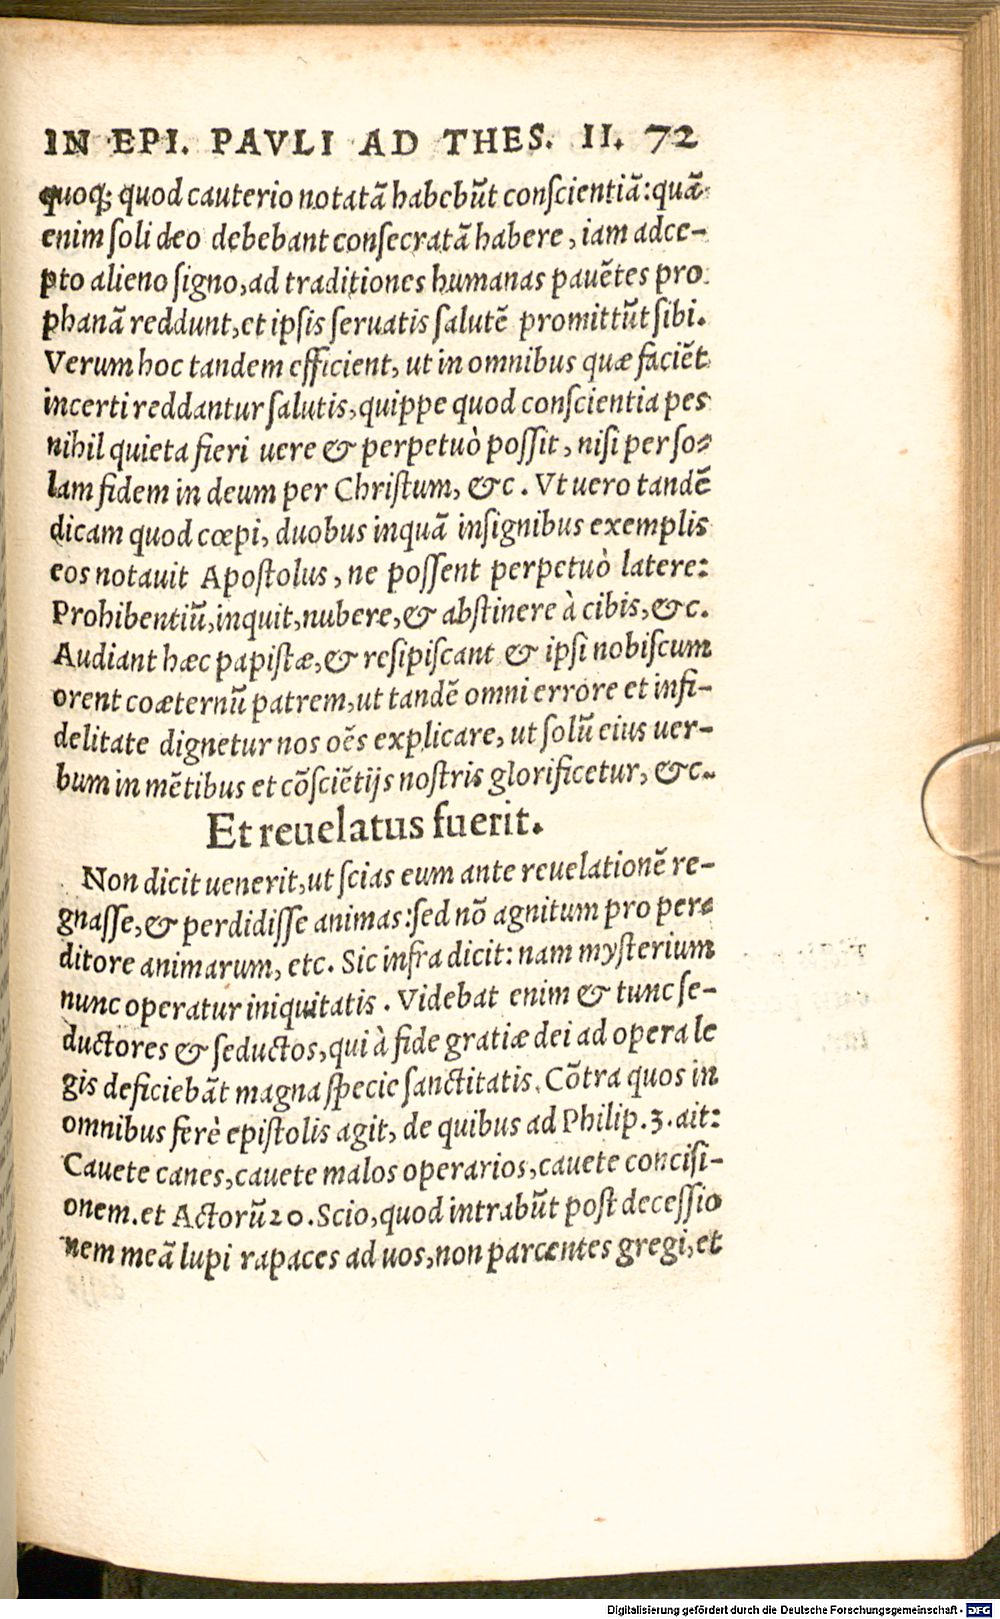 IN EPI. PAVLI AD THES. II. 72
quoq; quod cauterio notatã habebũt conſcientiã: quã
enim ſoli deo debebant conſecratã habere, iam adce-
pto alieno ſigno, ad traditiones humanas pauẽtes pro
phanã reddunt, et ipſis ſeruatis ſalutẽ promittũt ſibi.
Verum hoc tandem efficient, ut in omnibus quæ faciẽt
incerti reddantur ſalutis, quippe quod conſcientia pes
nihil quieta fieri uere & perpetuò poſſit, niſi per ſo-
lam fidem in deum per Chriſtum, &c. Vt uero tandẽ
dicam quod cœpi, duobus inquã inſignibus exemplis
eos notauit Apoſtolus, ne poſſent perpetuò latere:
Prohibentiũ, inquit, nubere, & abſtinere à cibis, &c.
Audiant hæc papiſtæ, & reſipiſcant & ipſi nobiſcum
orent coæternũ patrem, ut tandẽ omni errore et infi-
delitate dignetur nos oẽs explicare, ut ſolũ eius uer-
bum in mẽtibus et cõſciẽtijs noſtris glorificetur, &c.
Et reuelatus fuerit.
Non dicit uenerit, ut ſcias eum ante reuelationẽ re-
gnaſſe, & perdidiſſe animas: ſed nõ agnitum pro per-
ditore animarum, etc. Sic infra dicit: nam myſterium
nunc operatur iniquitatis. Videbat enim & tunc ſe-
ductores & ſeductos, qui à fide gratiæ dei ad opera le
gis deficiebãt magna ſpecie ſanctitatis. Cõtra quos in
omnibus ferè epiſtolis agit, de quibus ad Philip. 3. ait:
Cauete canes, cauete malos operarios, cauete conciſi-
onem. et Actorũ 20. Scio, quod intrabũt poſt deceſſio
nem meã lupi rapaces ad uos, non parcentes gregi, et
Digitalisierung gefördert durch die Deutsche Forschungsgemeinschaft - DFG